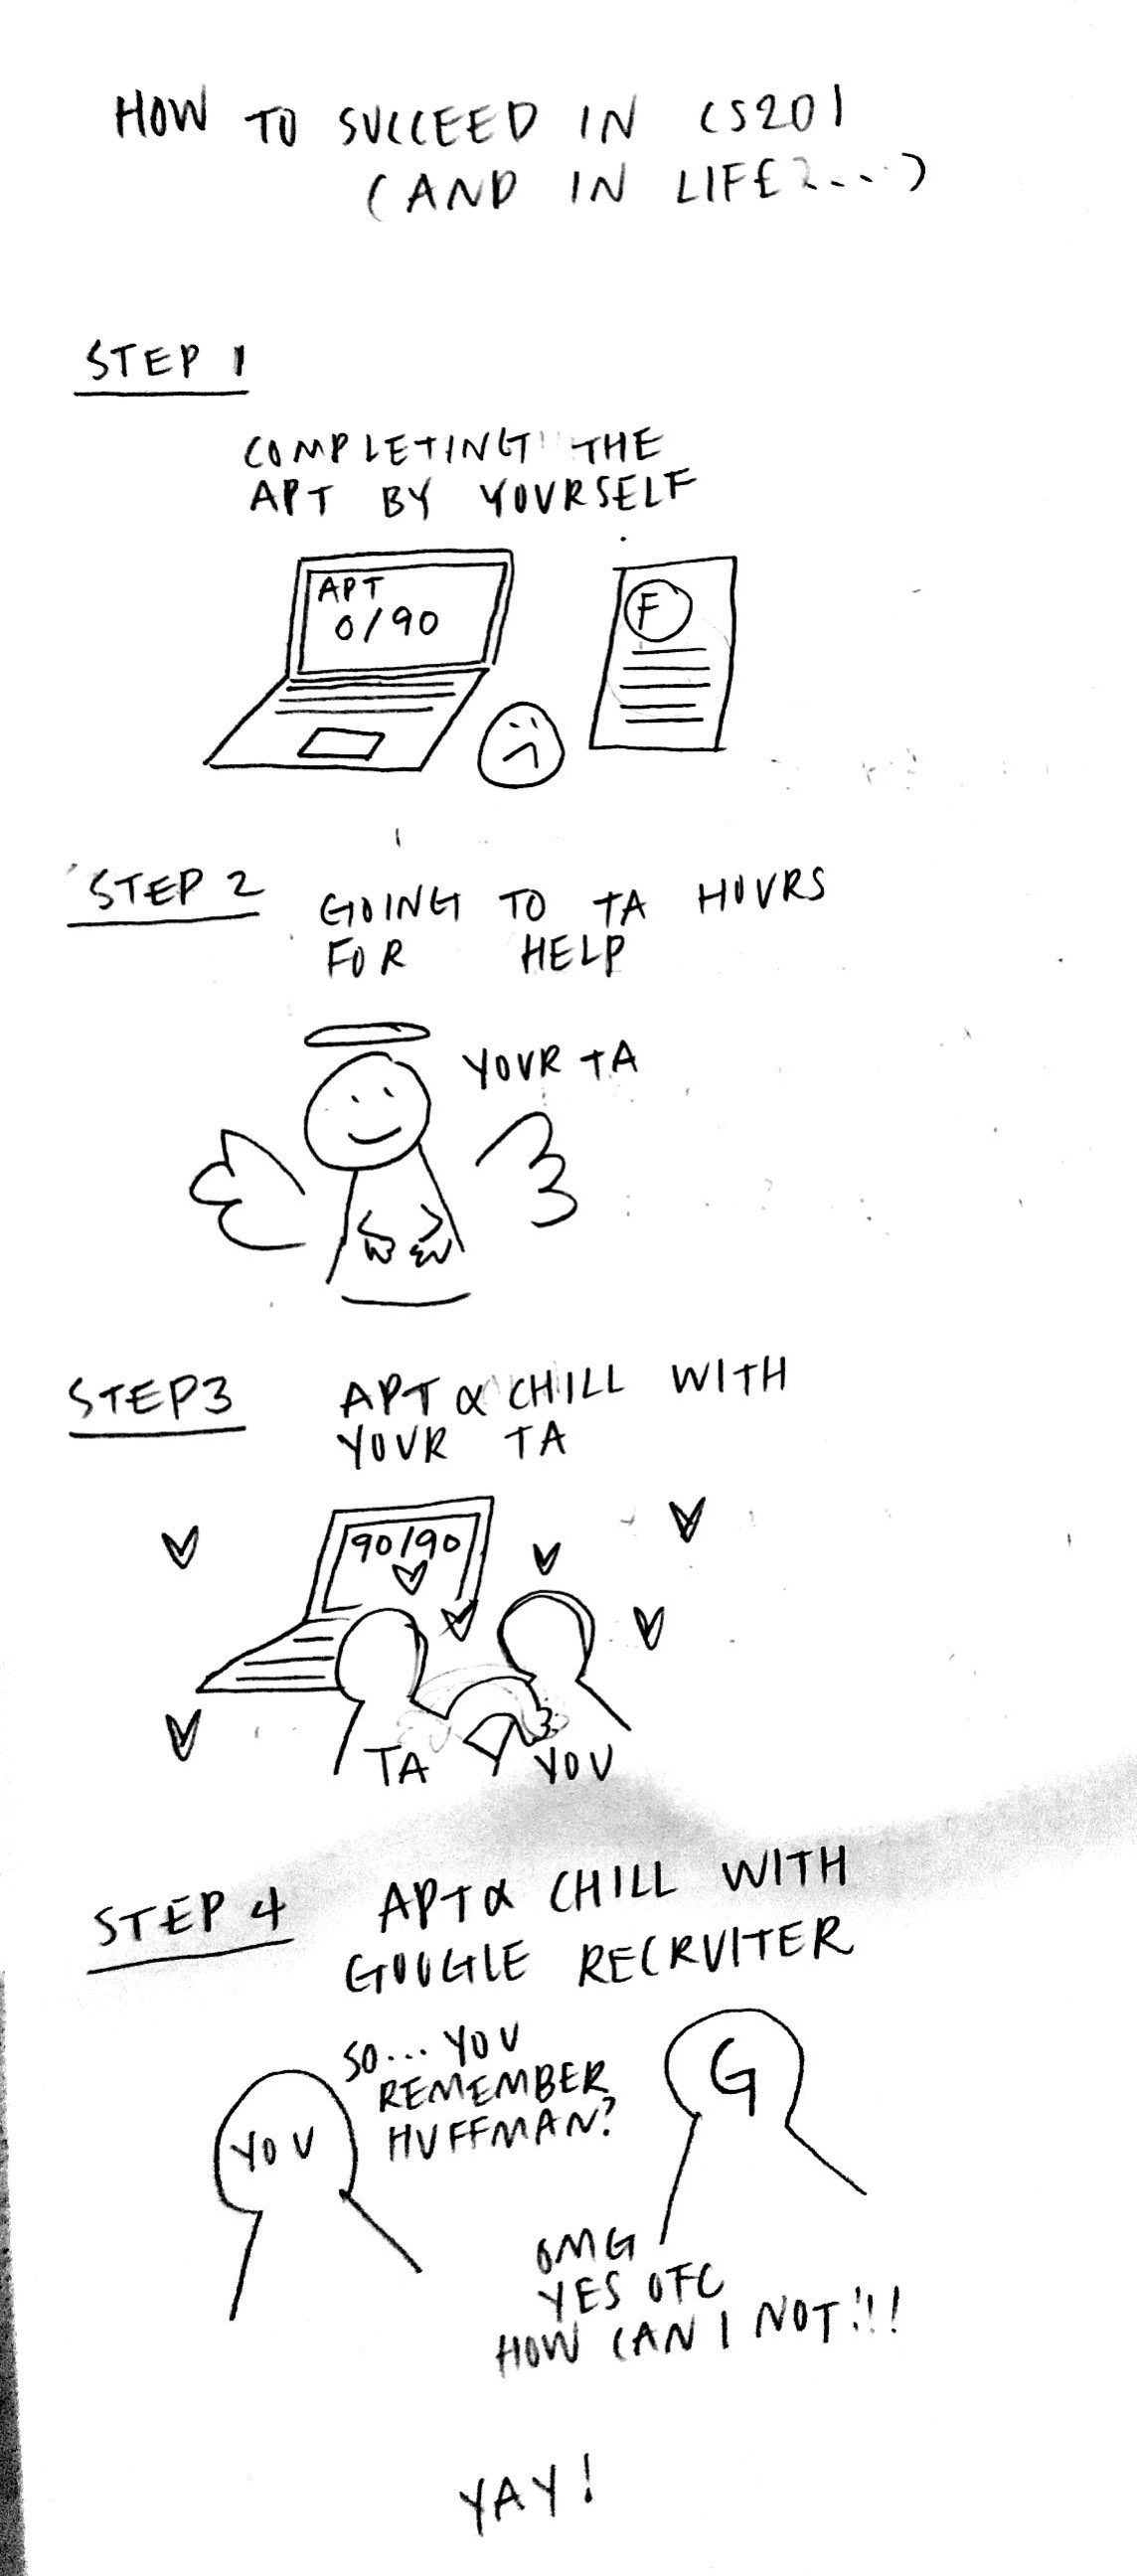 HOW TO SUCCEED IN CS201
(AND IN LIFE?...)
STEP 1
COMPLETING THE
APT BY YOURSELF
APT
0/90
F
STEP 2
GOING TO TA HOURS
FOR HELP
YOUR TA
STEP3
APT & CHILL WITH
YOUR TA
90/90
TA
YOU
STEP 4
APT & CHILL WITH
GOOGLE RECRUITER
SO... YOU
REMEMBER
HUFFMAN?
YOU
G
OMG
YES OFC
HOW CAN I NOT!!!
YAY!